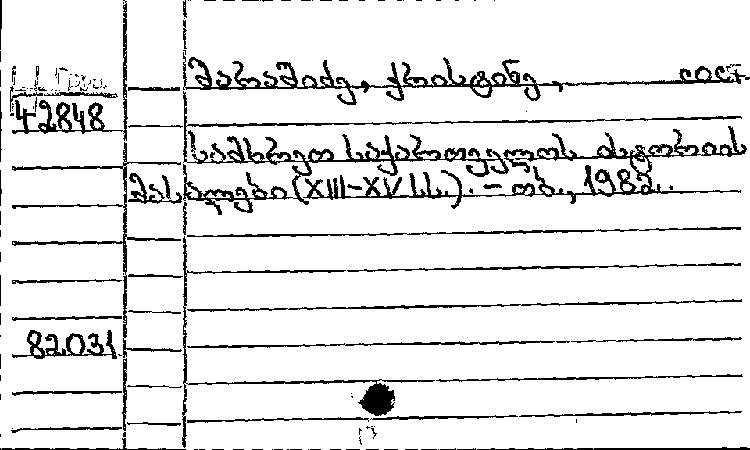 შარაშიძე, ქრისტინე, сост
42848
სამხრეთ საქართველოს ისტორიის
მასალები (XIII-XV სს.). - თბ., 1982.
82.031